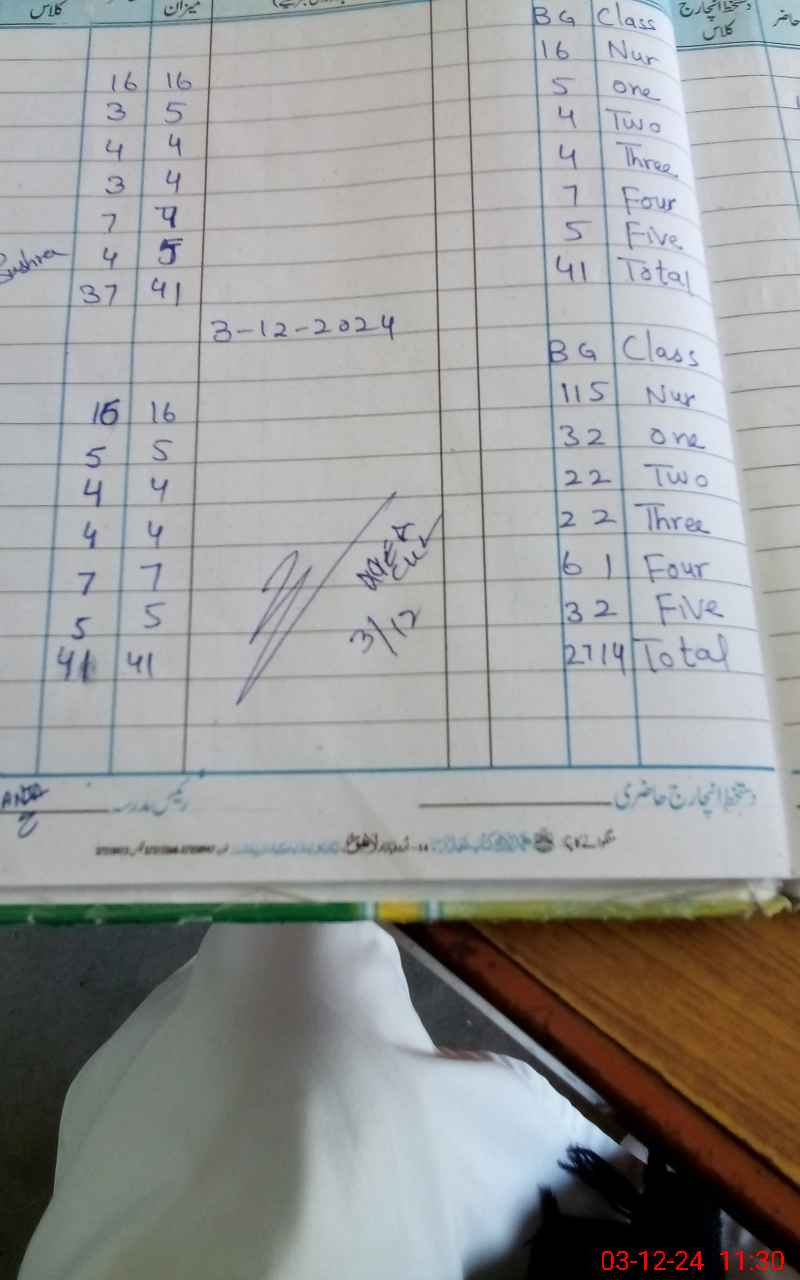 کلاس میزان B G Class دستخط انچارج کلاس حاضر
16 Nur
16 16 5 One
3 5 4 Two
4 4 4 Three
3 4 7 Four
7 7 5 Five
Bushra 4 5 41 Total
37 41
3-12-2024
B G Class
15 16 11 5 Nur
5 5 3 2 One
4 4 2 2 Two
4 4 2 2 Three
7 7 6 1 Four
5 5 3 2 Five
41 41 27 14 Total
3/12
رئیس مدرسہ دستخط انچارج حاضری
03-12-24 11:30